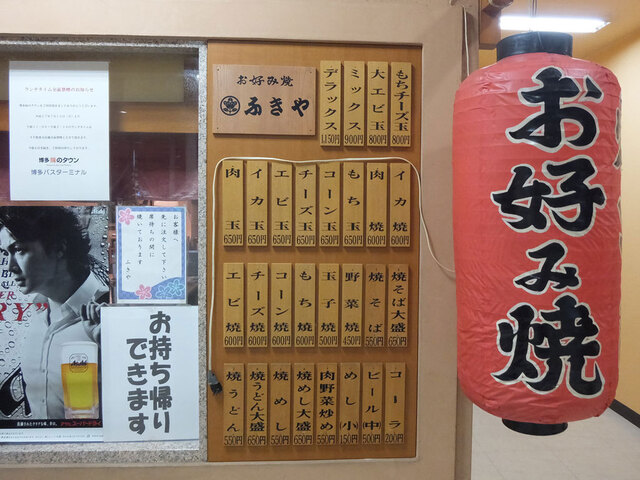 ランチタイム全面禁煙のお知らせ
博多 味のタウン
博多バスターミナル
お客様へ
先に注文して下さい
席待ちの間に
焼いております
ふきや
お持ち帰り
できます
お好み焼
ふきや
デラックス 1150円
ミックス 900円
大エビ玉 800円
もちチーズ玉 800円
肉玉 650円
イカ玉 650円
エビ玉 650円
チーズ玉 650円
コーン玉 650円
もち玉 650円
肉焼 600円
イカ焼 600円
エビ焼 600円
チーズ焼 600円
コーン焼 600円
もち焼 600円
玉子焼 500円
野菜焼 450円
焼そば 550円
焼そば大盛 650円
焼うどん 550円
焼うどん大盛 650円
焼めし 550円
焼めし大盛 650円
肉野菜炒め 550円
めし(小) 150円
ビール(中) 500円
コーラ 200円
お好み焼